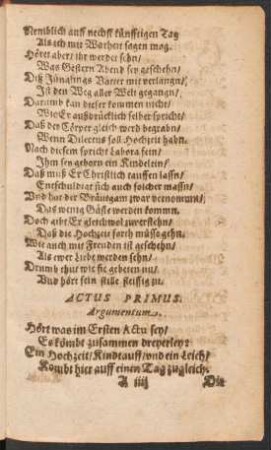 Nemblich auff nechst künfftigen Tag
Als ich mit Warheit sagen mag.
Höret aber/ ihr werdet sehn/
Was Gestern Abend sey geschehn/
Diß Jünglings Vatter mit verlangn/
Ist den Weg aller Welt gegangn/
Darumb kan dieser kommen nicht/
Wie Er außdrücklich selber spricht/
Daß der Cörper gleich werd begrabn/
Wenn Dilectus soll Hochzeit habn.
Nach diesem spricht Labora fein/
Ihm sey geborn ein Kindelein/
Daß muß Er Christlich tauffen lassn/
Entschuldigt sich auch solcher massn/
Und hat der Bräutgam zwar vernommn/
Das wenig Gäste werden kommn.
Doch gibt Er gleichwol zuverstehn/
Daß die Hochzeit forth müssa gehn.
Wie auch mit Freuden ist geschehn/
Als ewer Liebd werden sehn/
Drumb thut wie sie gebeten nu/
Und hört fein stille fleissig zu.
ACTUS PRIMUS.
Argumentum.
Hört was im Ersten Actu sey/
Es kömbt zusammen dreyerley:
Ein Hochzeit/ Kindtauff/ und ein Leich/
Kombt hier auff einen Tag zugleich.
A iiij Die